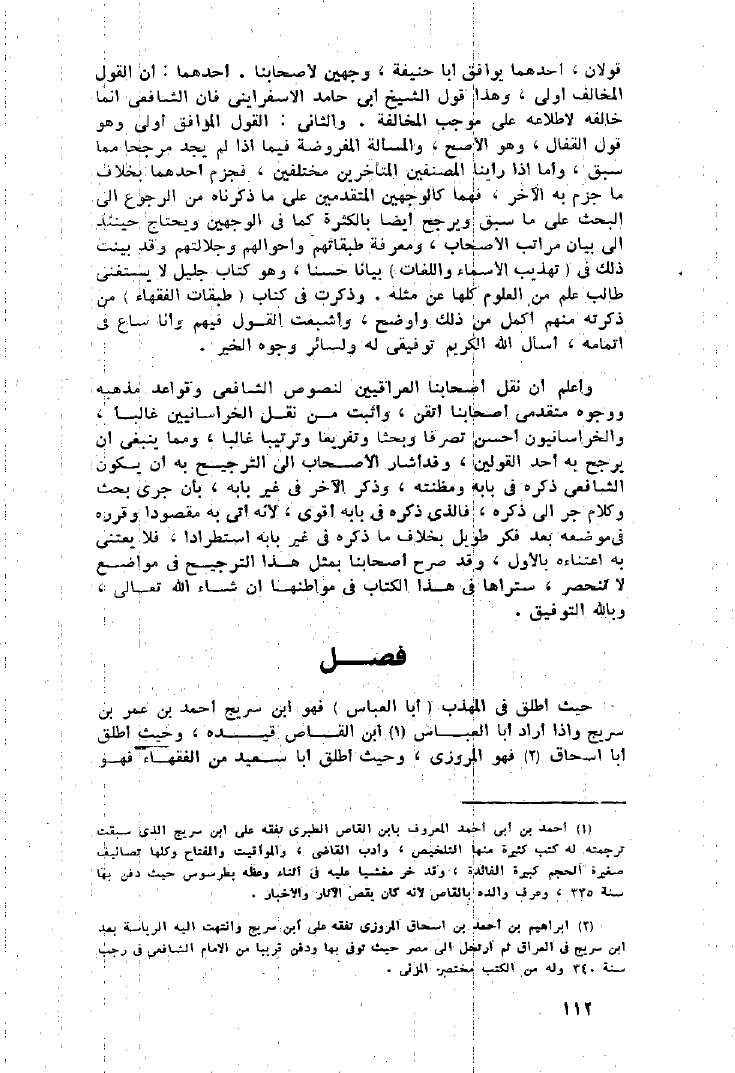 قولان ، أحدهما يوافق أبا حنيفة ، وجهين لأصحابنا . أحدهما : أن القول
المخالف أولى ، وهذا قول الشيخ أبى حامد الاسفراينى فان الشافعى انما
خالفه لاطلاعه على موجب المخالفة . والثانى : القول الموافق أولى وهو
قول القفال ، وهو الأصح ، والمسألة المفروضة فيما اذا لم يجد مرجحا مما
سبق ، وأما اذا رأينا المصنفين المتأخرين مختلفين ، فجزم أحدهما بخلاف
ما جزم به الآخر ، فهما كالوجهين المتقدمين على ما ذكرناه من الرجوع الى
البحث على ما سبق ويرجح أيضا بالكثرة كما فى الوجهين ويحتاج حينئذ
الى بيان مراتب الأصحاب ، ومعرفة طبقاتهم وأحوالهم وجلالتهم وقد بينت
ذلك فى ( تهذيب الأسماء واللغات ) بيانا حسنا ، وهو كتاب جليل لا يستغنى
طالب علم من العلوم كلها عن مثله . وذكرت فى كتاب ( طبقات الفقهاء ) من
ذكرته منهم أكمل من ذلك وأوضح ، وأشبعت القـول فيهم وأنا ساع فى
اتمامه ، أسال الله الكريم توفيقى له ولسائر وجوه الخير .
وأعلم أن نقل أصحابنا العراقيين لنصوص الشافعى وقواعد مذهبه
ووجوه متقدمى أصحابنا أتقن ، وأثبت مـن نقـل الخراسانيين غالبـا ،
والخراسانيون أحسن تصرفا وبحثا وتفريعا وترتيبا غالبا ، ومما ينبغى أن
يرجح به أحد القولين ، وقدأشار الأصـحاب الى الترجيـح به أن يـكون
الشافعى ذكره فى بابه ومظنته ، وذكر الآخر فى غير بابه ، بأن جرى بحث
وكلام جر الى ذكره ، فالذى ذكره فى بابه أقوى ، لأنه أتى به مقصودا وقرره
فىموضعه بعد فكر طويل بخلاف ما ذكره فى غير بابه استطرادا ، فلا يعتنى
به اعتناءه بالأول ، وقـد صرح أصحابنا بمثل هـذا الترجيـح فى مواضـع
لا تنحصر ، ستراها فى هـذا الكتاب فى مواطنهـا ان شـاء الله تعـالى ،
وبالله التوفيق .
فصـــل
حيث أطلق فى المهذب ( أبا العباس ) فهو ابن سريج أحمد بن عمر بن
سريج واذا أراد أبا العبـــاس (١) ابن القـــاص قيـــده ، وحيث أطلق
أبا اسحاق (٢) فهو المروزى ، وحيث أطلق أبا سـعيد من الفقهـاء فهـو
(١) أحمد بن أبى أحمد المعروف بابن القاص الطبرى تفقه على ابن سريج الذى سبقت
ترجمته له كتب كثيرة منها التلخيص ، وأدب القاضى ، والمواقيت والمفتاح وكلها تصانيف
صغيرة الحجم كبيرة الفائدة ، وقد خر مغشيا عليه فى أثناء وعظه بطرسوس حيث دفن بها
سنة ٣٣٥ ، وعرف والده بالقاص لأنه كان يقص الآثار والأخبار .
(٢) ابراهيم بن أحمد بن اسحاق المروزى تفقه على ابن سريج وانتهت اليه الرياسة بعد
ابن سريج فى العراق ثم ارتحل الى مصر حيث توفى بها ودفن قريبا من الامام الشافعى فى رجب
سنة ٣٤٠ وله من الكتب مختصر المزنى .
١١٢